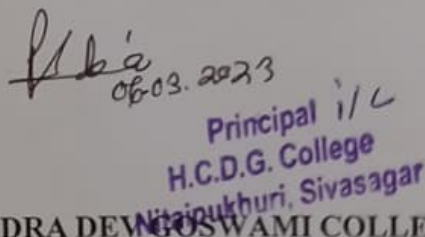 06.03.2023
Principal i/c
H.C.D.G. College
Nitaipukhuri, Sivasagar
DRA DEV GOSWAMI COLLE